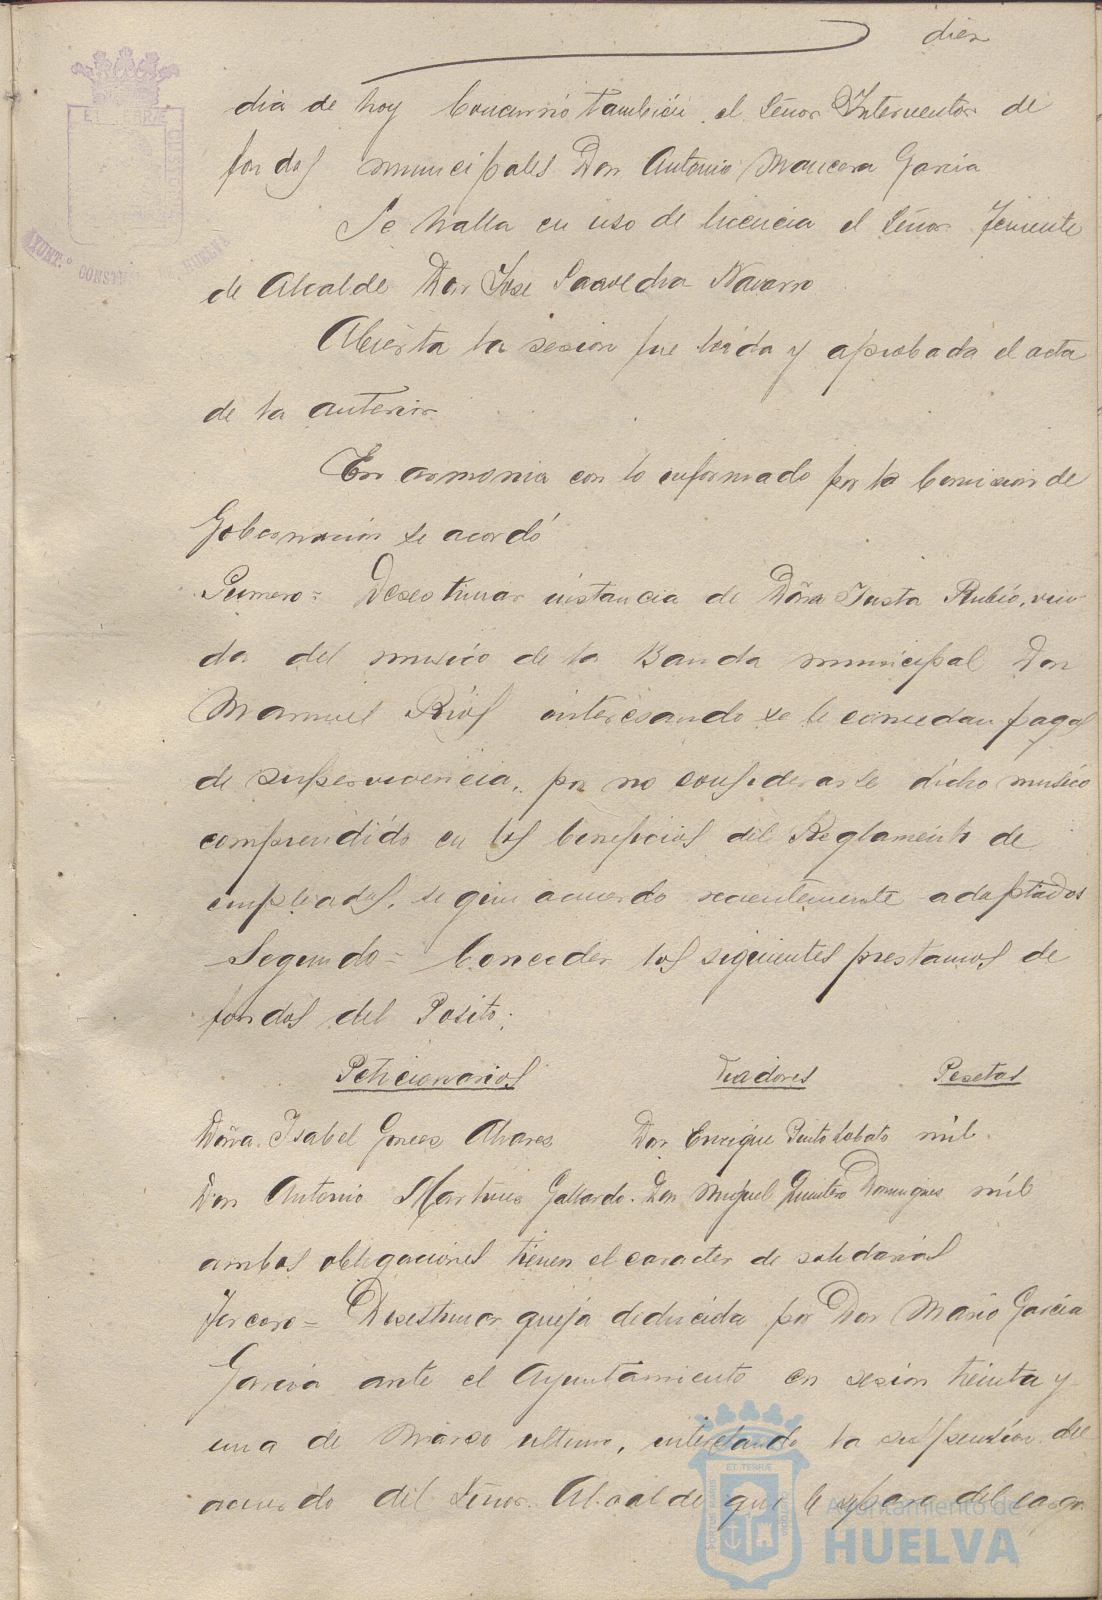 diez
dia de hoy Concurrió tambien el Señor Interventor de
fondos municipales Don Antonio Mancera Garcia
Se halla en uso de licencia el Señor Teniente
de Alcalde Don Jose Saavedra Navarro
Abierta la sesion fue leida y aprobada el acta
de la anterior
En armonia con lo informado por la Comision de
Gobernación se acordó
Primero = Desestimar instancia de Doña Justa Rubio, viu
da del musico de la Banda municipal Don
Manuel Rios interesando se le concedan pagas
de supervivencia, por no considerarse dicho musico
comprendido en los beneficios del Reglamento de
empleados, segun acuerdo recientemente adoptados
Segundo = Conceder los siguientes prestamos de
fondos del Posito;
Peticionarios Fiadores Pesetas
Doña Isabel Alvarez Don Enrique Lobato mil.
Don Antonio Martinez Gallardo. Don Miguel Quintero Dominguez mil
ambas obligaciones tienen el caracter de solidarias
Tercero = Desestimar queja deducida por Don Mario Garcia
Garcia ante el Ayuntamiento en sesion treinta y
una de Marzo ultimo, interesando la suspensión del
acuerdo del Señor Alcalde que le separa del cargo
ET TERRÆ CUSTODIA
AYUNT.º CONST. DE HUELVA
Ayuntamiento de
HUELVA